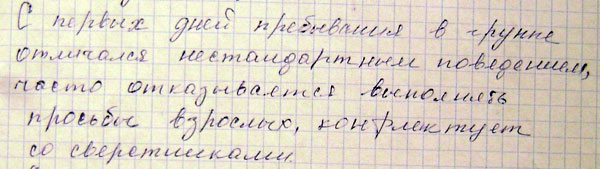 С первых дней пребывания в группе
отличался нестандартным поведением,
часто отказывается выполнять
просьбы взрослых, конфлектует
со сверстниками.